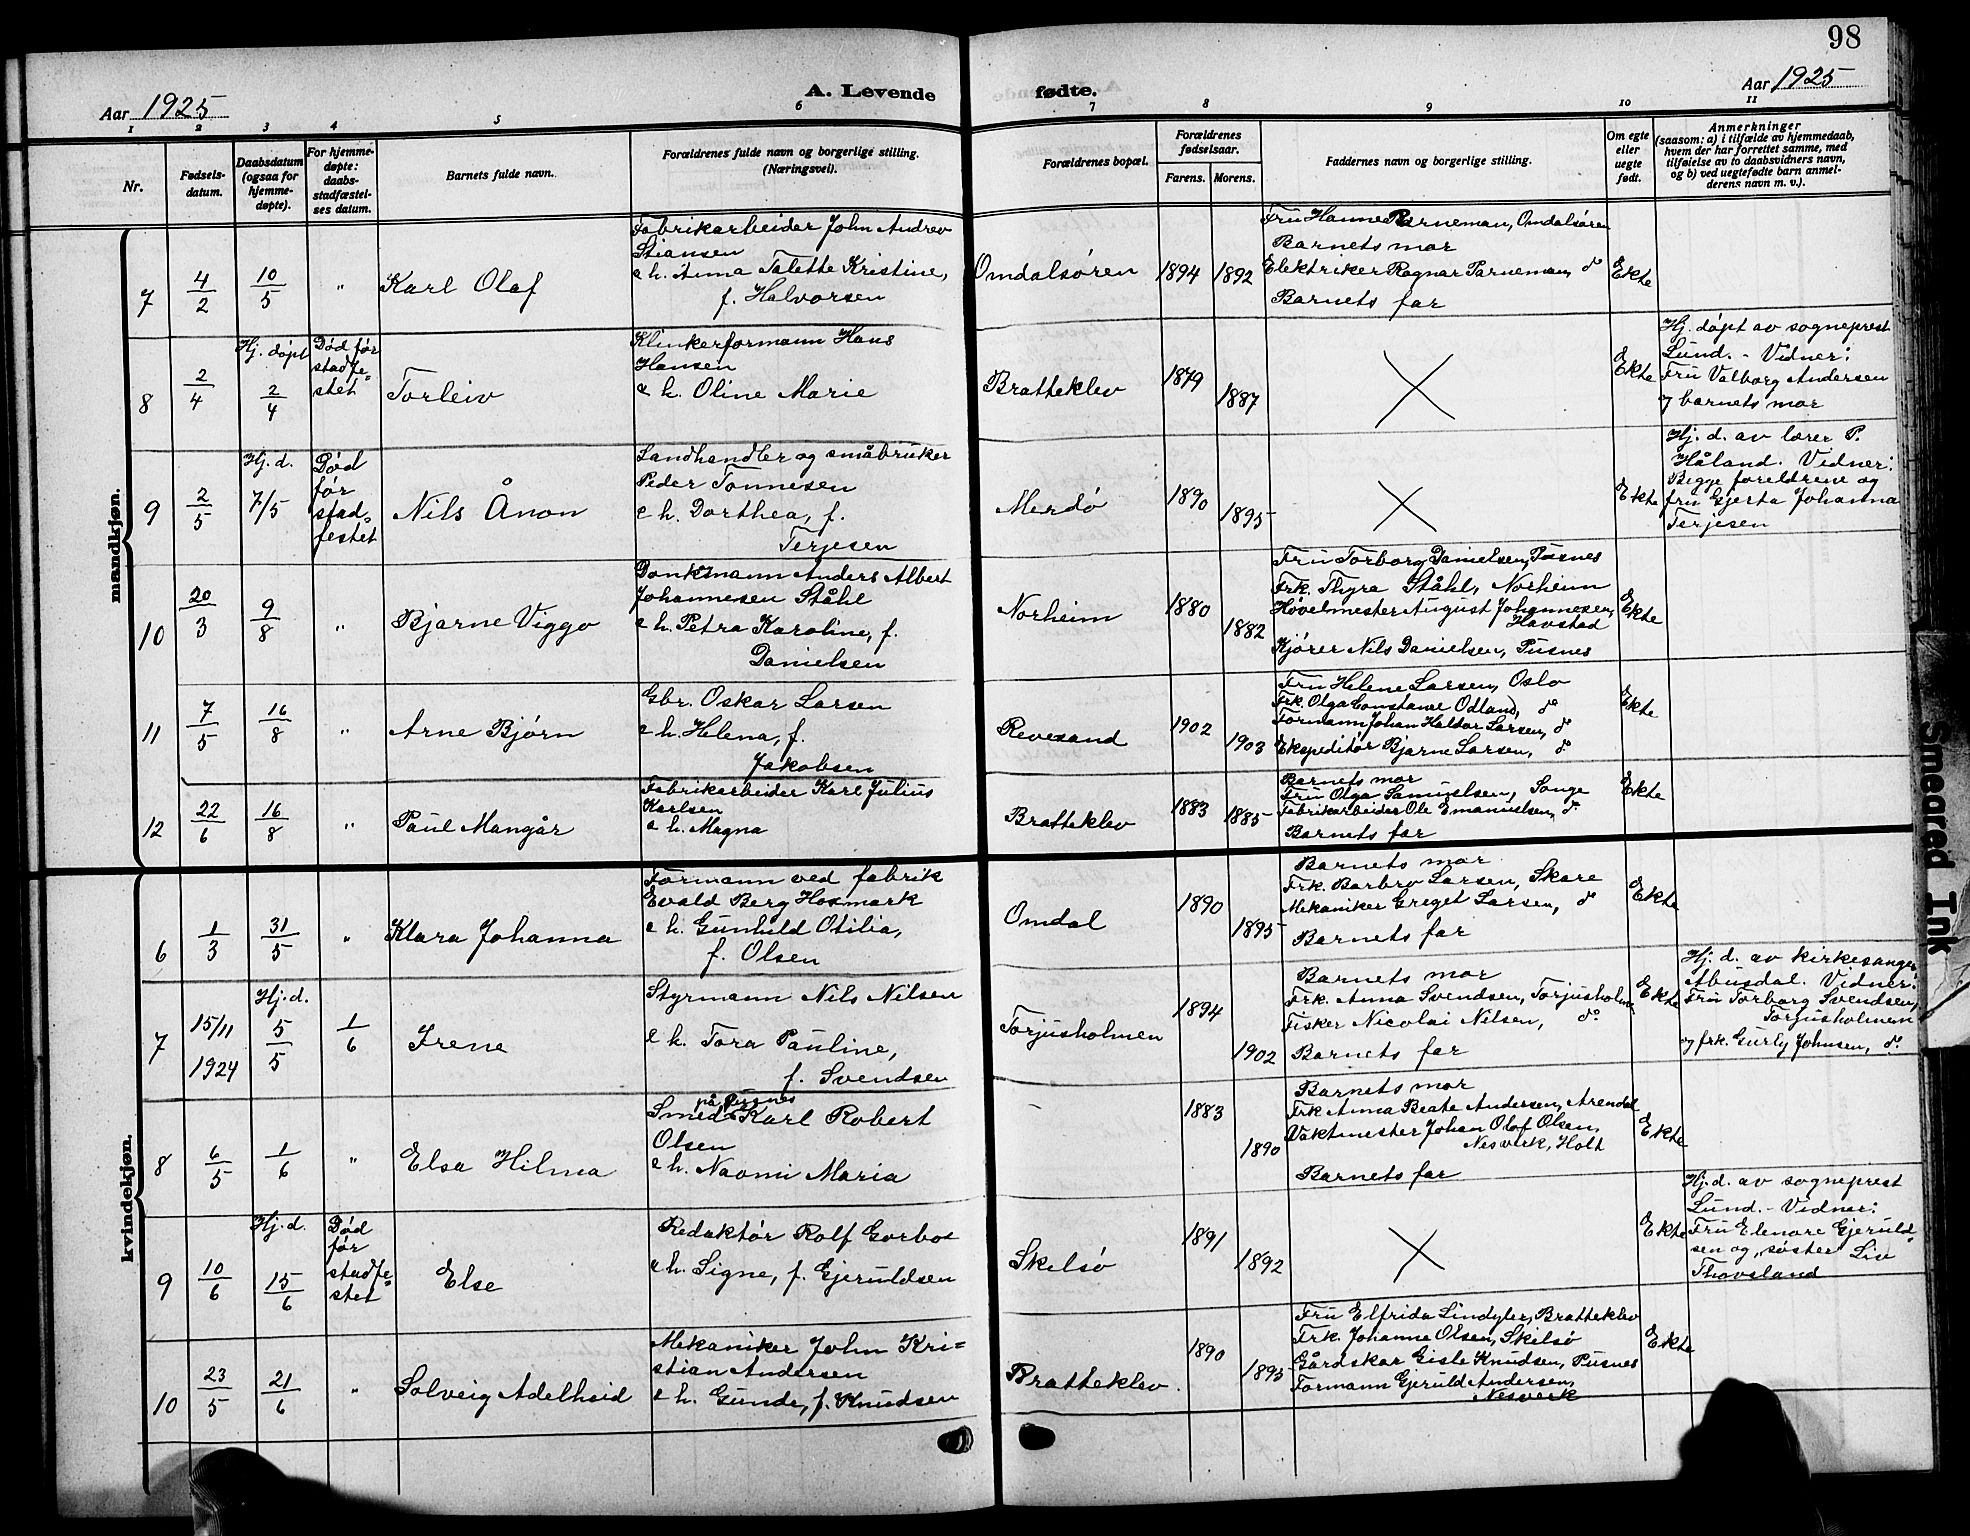 98
Aar 1925
A. Levende fødte.
Aar 1925
1 2 3 4 5 6 7 8 9 10 11
Nr.
Fødsels-
datum.
Daabsdatum
(ogsaa for
hjemme-
døpte).
For hjemme-
døpte:
daabs-
stadfæstel-
ses datum.
Barnets fulde navn.
Forældrenes fulde navn og borgerlige stilling.
(Næringsvei).
Forældrenes bopæl.
Forældrenes
fødselsaar.
Farens. Morens.
Faddernes navn og borgerlige stilling.
Om egte
eller
uegte
født.
Anmerkninger
(saasom: a) i tilfælde av hjemmedaab,
hvem der har forrettet samme, med
tilføielse av to daabsvidners navn,
og b) ved uegtefødte barn anmel-
derens navn m. v.).
mandkjøn.
7
4/2
10/5
"
Karl Olaf
Fabrikarbeider John Andrev
Stiansen
e h. Anna Talette Kristine,
f. Halvorsen
Omdalsøren
1894
1892
Fru Hanne Parneman, Omdalsøren
Barnets mor
Elektriker Ragnar Parneman, do
Barnets far
Ekte
8
2/4
Hj. døpt
2/4
Død før
stadfe=
stet
Torleiv
Klinkerformann Hans
Hansen
e h. Oline Marie
Bratteklev
1879
1887
Ekte
Hj. døpt av sogneprest
Lund. - Vidner:
Fru Valborg Andersen
og barnets mor
9
2/5
Hj. d.
7/5
Død
før
stad=
festet
Nils Ånon
Landhandler og småbruker
Peder Tønnesen
e h. Dorthea, f.
Terjesen
Merdø
1890
1895
Ekte
Hj. d. av lærer P.
Håland. Vidner:
Begge foreldrene og
fru Gjerta Johanna
Terjesen
10
20/3
9/8
"
Bjarne Viggo
Donkemann Anders Albert
Johannesen Ståhl
e h. Petra Karoline, f.
Danielsen
Norheim
1880
1882
Fru Torborg Danielsen, Pusnes
Frk. Thyra Ståhl, Norheim
Høvelmester August Johannesen,
Havstad
Kjører Nils Danielsen, Pusnes
Ekte
11
7/5
16/8
"
Arne Bjørn
Gbr. Oskar Larsen
e h. Helena, f.
Jakobsen
Revesand
1902
1903
Fru Helene Larsen, Oslo
Frk. Olga Constanse Odland, do
Formann Johan Haldor Larsen, do
Ekspeditør Bjarne Larsen, do
Ekte
12
22/6
16/8
"
Paul Mangår
Fabrikarbeider Karl Julius
Karlsen
e h. Magna
Bratteklev
1883
1885
Barnets mor
Fru Olga Samuelsen, Songe
Fabrikarbeider Ole Emanuelsen, do
Barnets far
Ekte
kvindekjøn.
6
1/3
31/5
"
Klara Johanna
Formann ved fabrik
Evald Berg Hosmark
e h. Gunhild Otilia,
f. Olsen
Omdal
1890
1895
Barnets mor
Frk. Barbro Larsen, Skare
Mekaniker Greget Larsen, do
Barnets far
Ekte
7
15/11
1924
Hj. d.
5/5
1/6
Irene
Styrmann Nils Nilsen
e h. Tora Pauline,
f. Svendsen
Torjusholmen
1894
1902
Barnets mor
Frk. Anna Svendsen, Torjusholm
Fisker Nicolai Nilsen, do
Barnets far
Ekte
Hj. d. av kirkesanger
Abusdal. Vidner:
Fru Torborg Svendsen,
Torjusholmen
og frk. Gurly Johnsen, do
8
6/5
1/6
"
Elsa Hilma
på Pusnes
Smed Karl Robert
Olsen
e h. Naomi Maria
1883
1890
Barnets mor
Frk Anna Beate Andersen, Arendal
Vaktmester Johan Olaf Olsen,
Nesverk, Holt
Barnets far
Ekte
9
10/6
Hj. d.
15/6
Død
før
stadfe=
stet
Else
Redaktør Rolf Gorboe
e h. Signe, f. Gjeruldsen
Skilsø
1891
1892
Ekte
Hj. d. av sogneprest
Lund. - Vidner:
Fru Elenore Gjeruld=
sen og søster Liv
Thovsland
10
23/5
21/6
"
Solveig Adelheid
Mekaniker John Kri=
stian Andersen
e h. Gunda, f. Knudsen
Bratteklev.
1890
1895
Fru Elfrida Lindyler, Bratteklev
Frk. Johanne Olsen, Skilsø
Gårdskar Gisle Knudsen, Pusnes
Formann Gjeruld Andersen,
Nesverk
Ekte
Smeared Ink